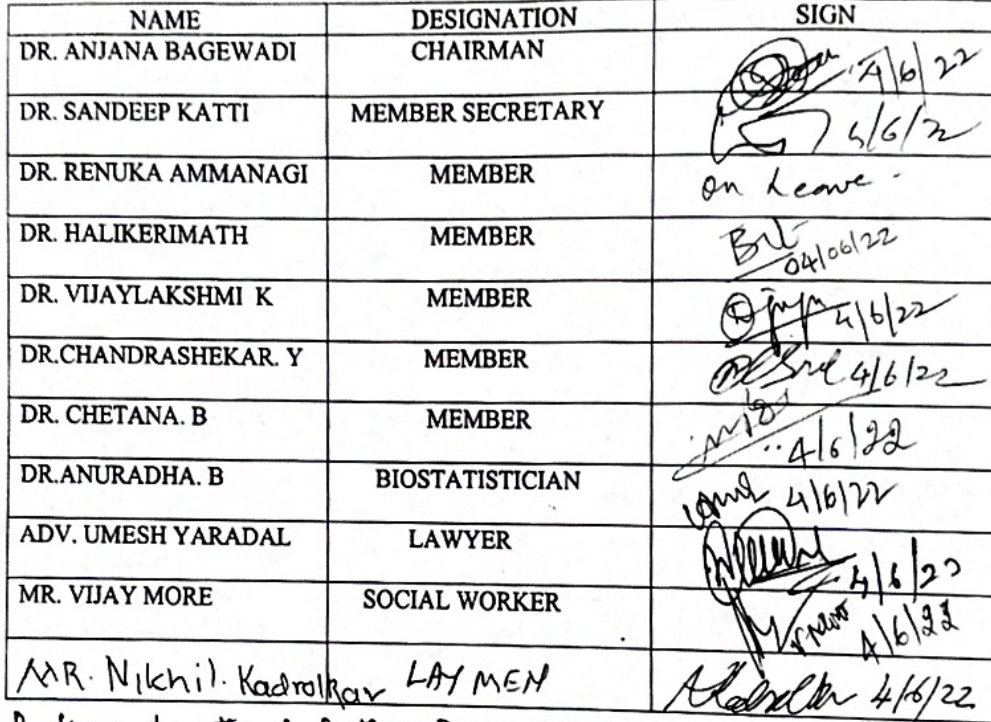 NAME DESIGNATION SIGN
DR. ANJANA BAGEWADI CHAIRMAN 4/6/22
DR. SANDEEP KATTI MEMBER SECRETARY 4/6/22
DR. RENUKA AMMANAGI MEMBER on Leave -
DR. HALIKERIMATH MEMBER 04/06/22
DR. VIJAYLAKSHMI K MEMBER 4/6/22
DR.CHANDRASHEKAR. Y MEMBER 4/6/22
DR. CHETANA. B MEMBER 4/6/22
DR.ANURADHA. B BIOSTATISTICIAN 4/6/22
ADV. UMESH YARADAL LAWYER 4/6/22
MR. VIJAY MORE SOCIAL WORKER 4/6/22
MR. Nikhil. Kadrolkar LAYMEN 4/6/22